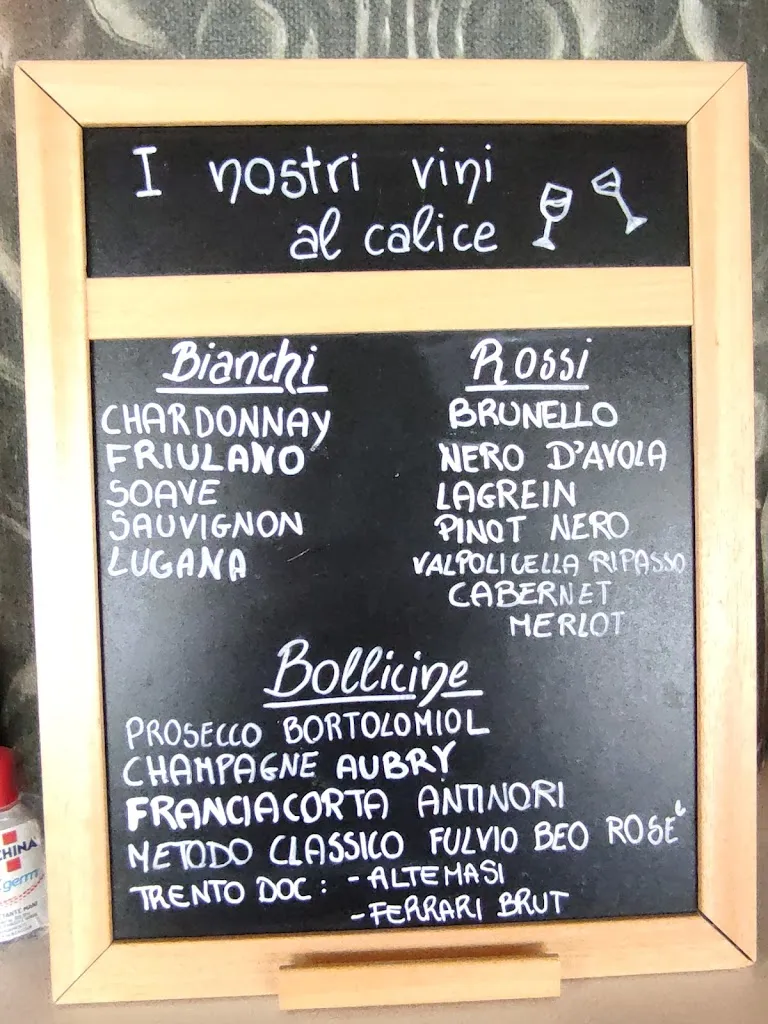 I nostri vini
al calice
Bianchi
CHARDONNAY
FRIULANO
SOAVE
SAUVIGNON
LUGANA
Rossi
BRUNELLO
NERO D'AVOLA
LAGREIN
PINOT NERO
VALPOLICELLA RIPASSO
CABERNET
MERLOT
Bollicine
PROSECCO BORTOLOMIOL
CHAMPAGNE AUBRY
FRANCIACORTA ANTINORI
METODO CLASSICO FULVIO BEO ROSE'
TRENTO DOC: - ALTEMASI
- FERRARI BRUT
CHINA
germ